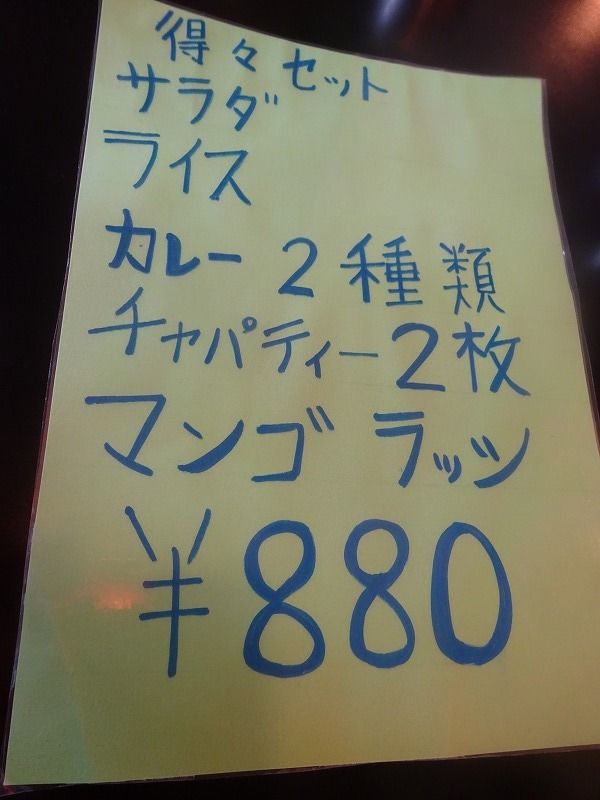 得々セット
サラダ
ライス
カレー 2種類
チャパティー2枚
マンゴ ラッシ
¥880